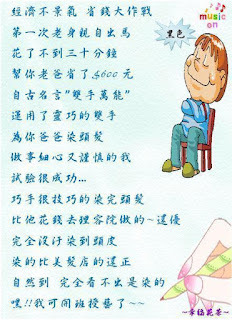 經濟不景氣 省錢大作戰
music on
黑色
第一次老身親自出馬
花了不到三十分鐘
幫你老爸省了$600元
自古名言"雙手萬能"
運用了靈巧的雙手
為你爸爸染頭髮
做事細心又謹慎的我
試驗很成功...
巧手很技巧的染完頭髮
比他花錢去理容院做的~還優
完全沒汙染到頭皮
染的比美髮店的還正
自然到 完全看不出是染的
嘿!!我可開班授藝了~~
~幸福苑茶~